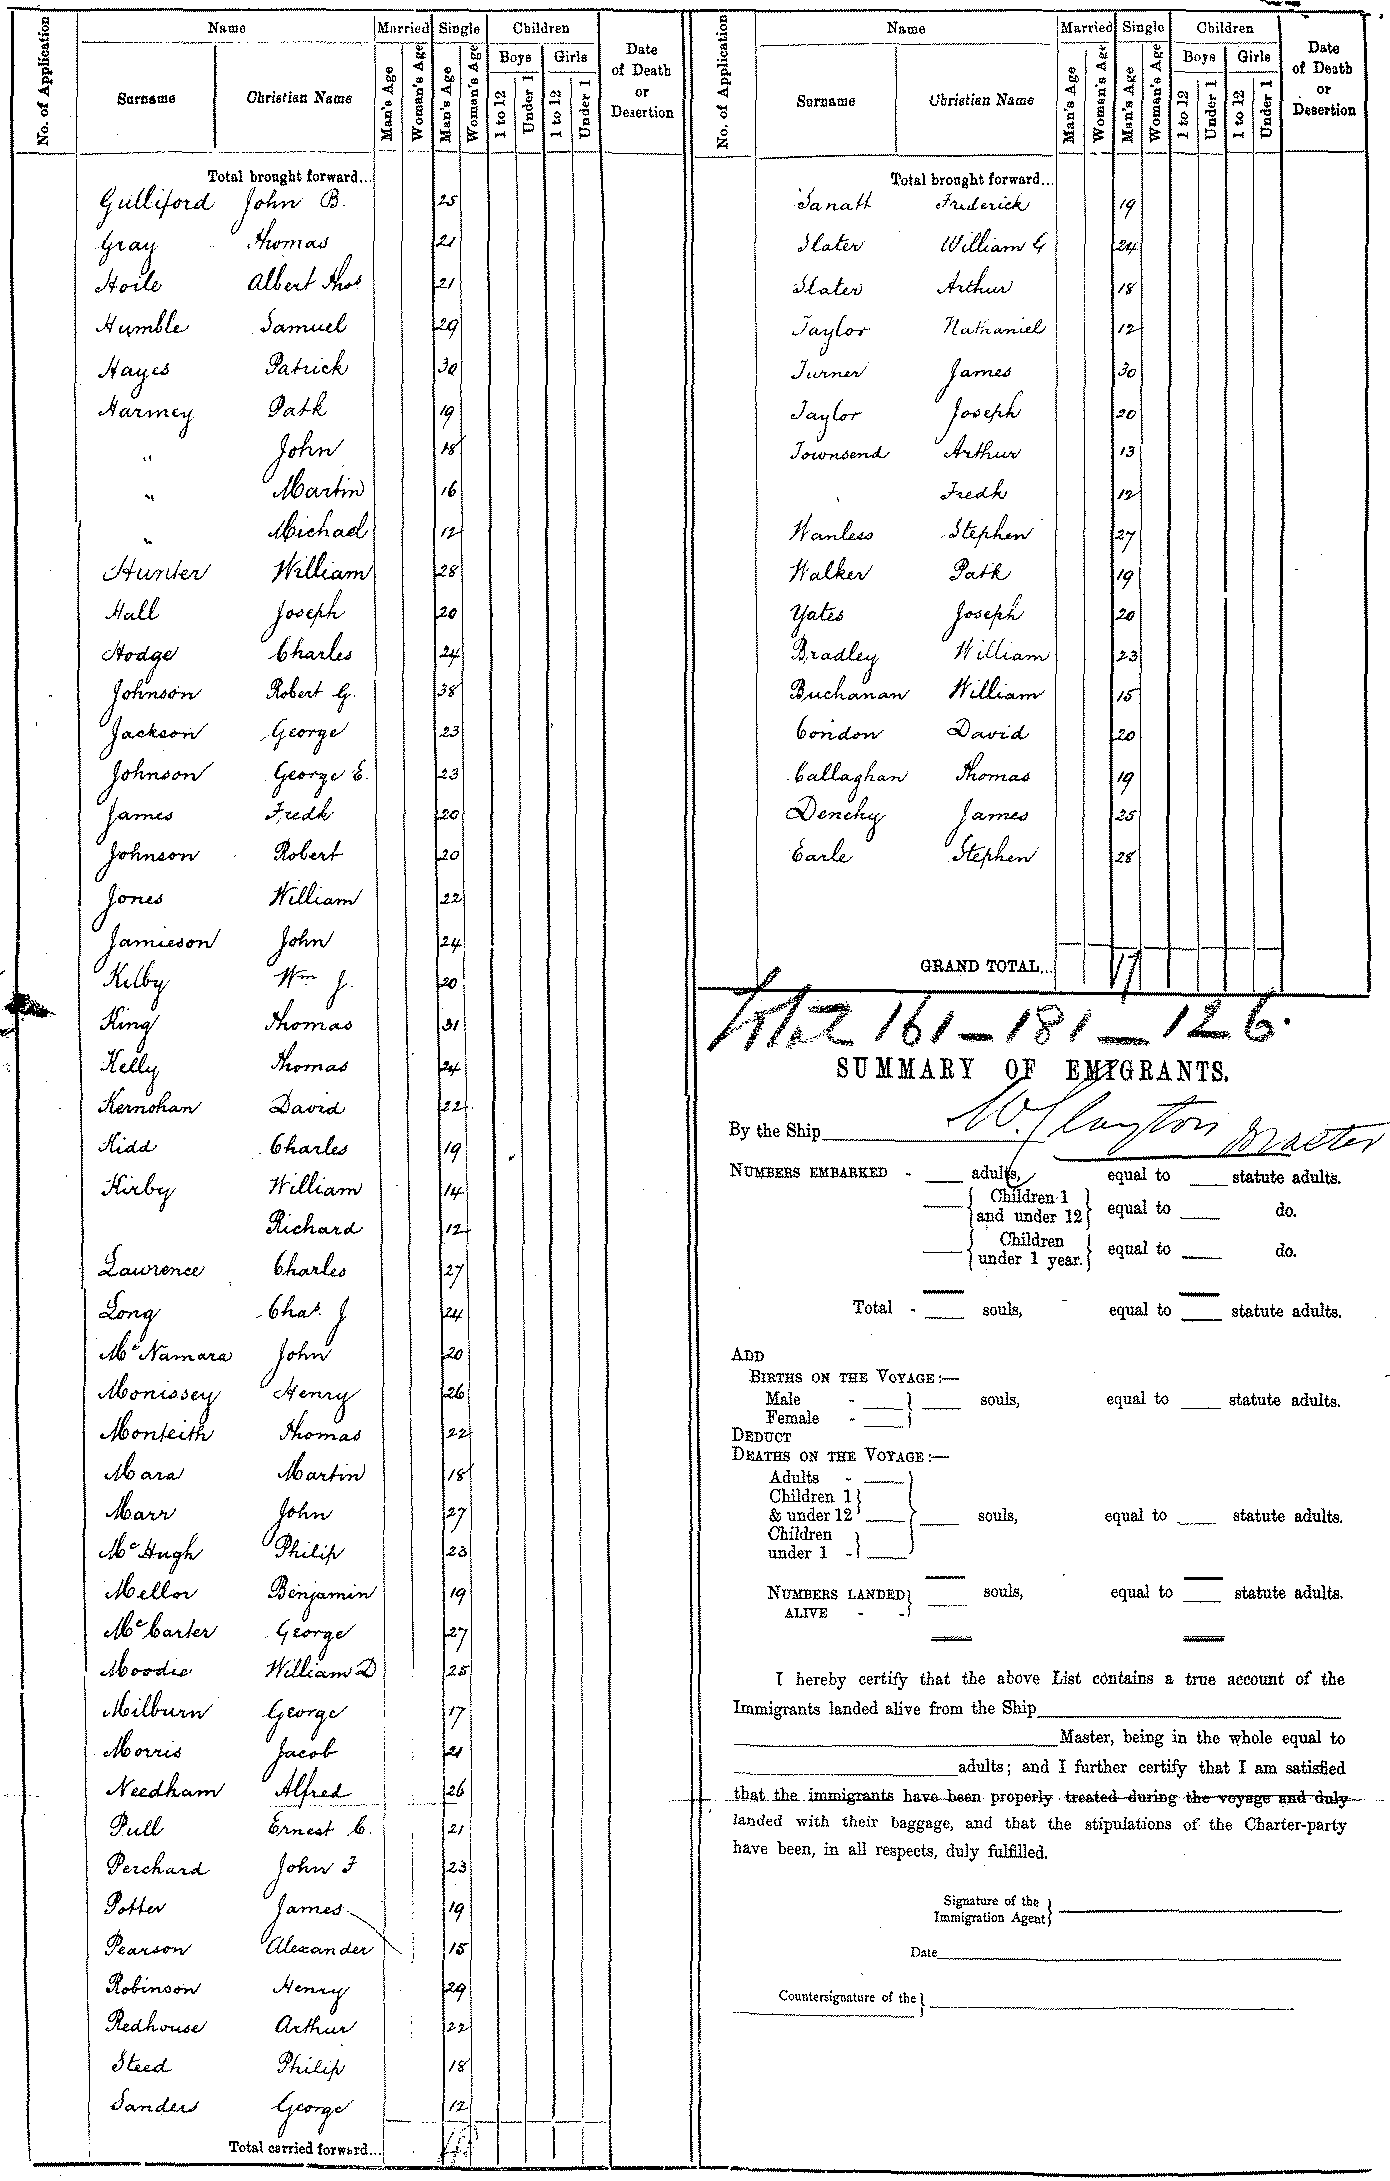 No. of Application
Name
Married
Single
Children
Surname
Christian Name
Man's Age
Woman's Age
Man's Age
Woman's Age
Boys
Girls
1 to 12
Under 1
1 to 12
Under 1
Date
of Death
or
Desertion
Total brought forward...
Gulliford John B. 25
Gray Thomas 21
Hoile Albert Thos 21
Humble Samuel 29
Hayes Patrick 30
Harmey Patk 19
" John 18
" Martin 16
" Michael 12
Hunter William 28
Hall Joseph 20
Hodge Charles 24
Johnson Robert G. 38
Jackson George 23
Johnson George E. 23
James Fredk 20
Johnson Robert 20
Jones William 22
Jamieson John 24
Kilby Wm J. 20
King Thomas 31
Kelly Thomas 24
Kernohan David 22
Kidd Charles 19
Kirby William 14
Richard 12
Lawrence Charles 27
Long Chas. J 24
McNamara John 20
Monissey Henry 26
Monteith Thomas 22
Mara Martin 18
Marr John 27
McHugh Philip 23
Mellor Benjamin 19
McCarter George 27
Moodie William D 25
Milburn George 17
Morris Jacob 21
Needham Alfred 26
Pull Ernest C. 21
Perchard John F 23
Potter James 19
Pearson Alexander 15
Robinson Henry 29
Redhouse Arthur 22
Steed Philip 18
Sanders George 12
Total carried forward...
No. of Application
Name
Married
Single
Children
Surname
Christian Name
Man's Age
Woman's Age
Man's Age
Woman's Age
Boys
Girls
1 to 12
Under 1
1 to 12
Under 1
Date
of Death
or
Desertion
Total brought forward...
Frederick 19
Slater William G 24
Slater Arthur 18
Taylor Nathaniel 12
Turner James 30
Taylor Joseph 20
Townsend Arthur 13
Fredk 12
Wanless Stephen 27
Walker Patk 19
Yates Joseph 20
Bradley William 23
Buchanan William 15
Condon David 20
Callaghan Thomas 19
Denehy James 25
Earle Stephen 28
GRAND TOTAL... 17
Total 161 – 181 – 126.
SUMMARY OF EMIGRANTS.
By the Ship W. Clayton Master
NUMBERS EMBARKED - adults, equal to statute adults.
Children 1
and under 12 equal to do.
Children
under 1 year. equal to do.
Total - souls, equal to statute adults.
ADD
BIRTHS ON THE VOYAGE:—
Male - souls, equal to statute adults.
Female -
DEDUCT
DEATHS ON THE VOYAGE:—
Adults -
Children 1
& under 12 souls, equal to statute adults.
Children
under 1 -
NUMBERS LANDED souls, equal to statute adults.
ALIVE - -
I hereby certify that the above List contains a true account of the
Immigrants landed alive from the Ship
Master, being in the whole equal to
adults; and I further certify that I am satisfied
that the immigrants have been properly treated during the voyage and duly
landed with their baggage, and that the stipulations of the Charter-party
have been, in all respects, duly fulfilled.
Signature of the
Immigration Agent
Date
Countersignature of the